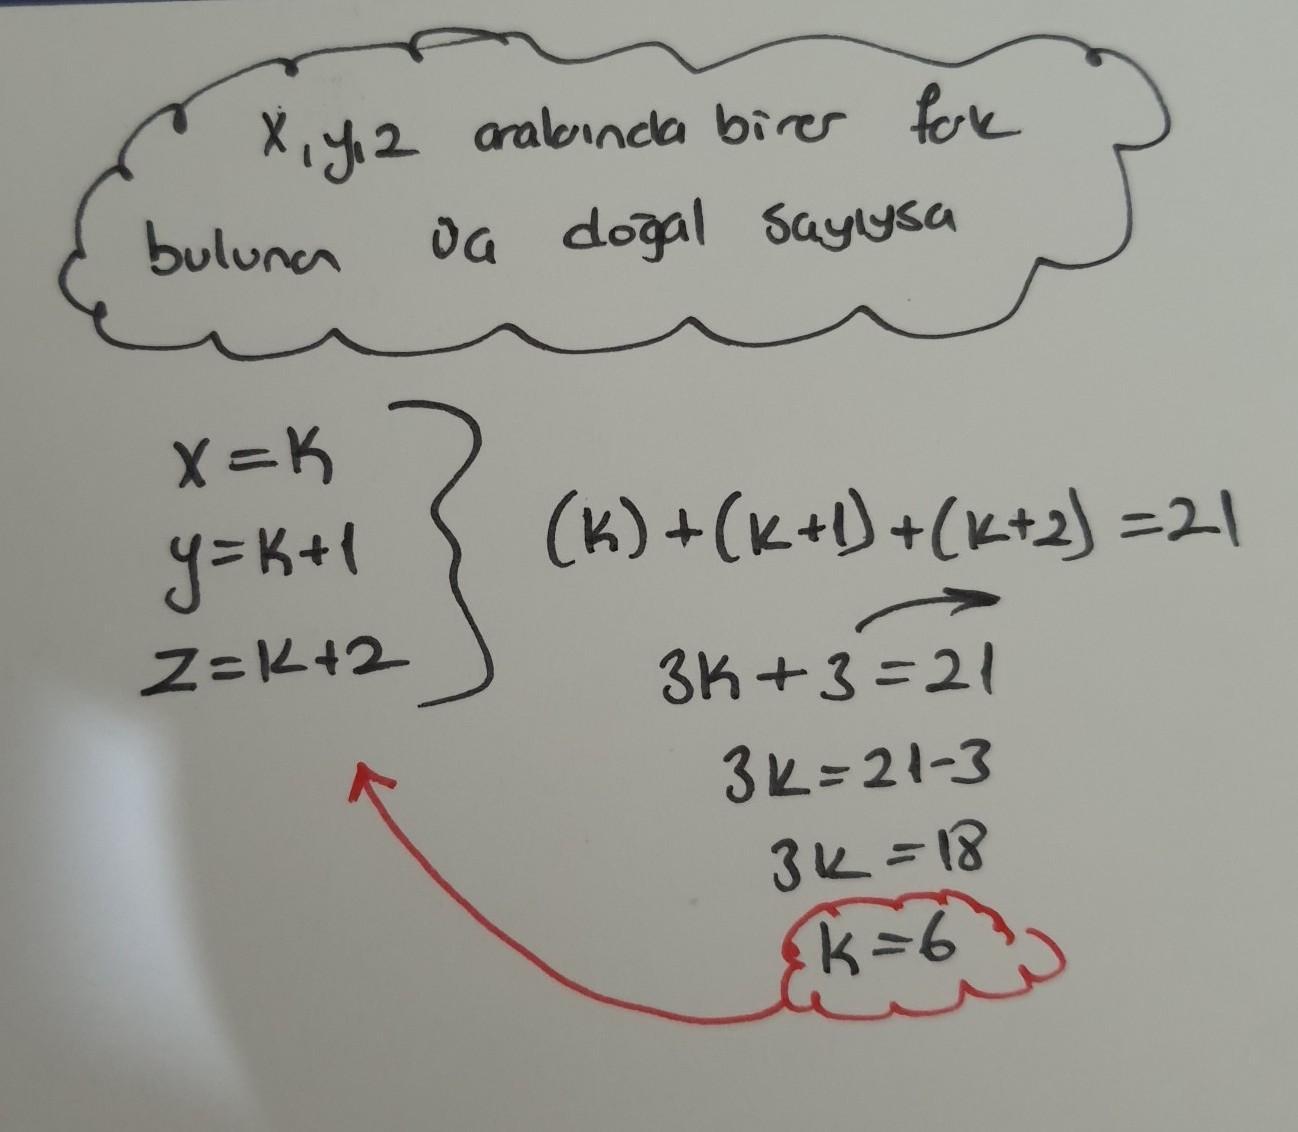 x, y, z aralarında birer fark
bulunan üç doğal sayıysa
x = k
y = k+1
z = k+2
(k) + (k+1) + (k+2) = 21
3k + 3 = 21
3k = 21-3
3k = 18
k = 6